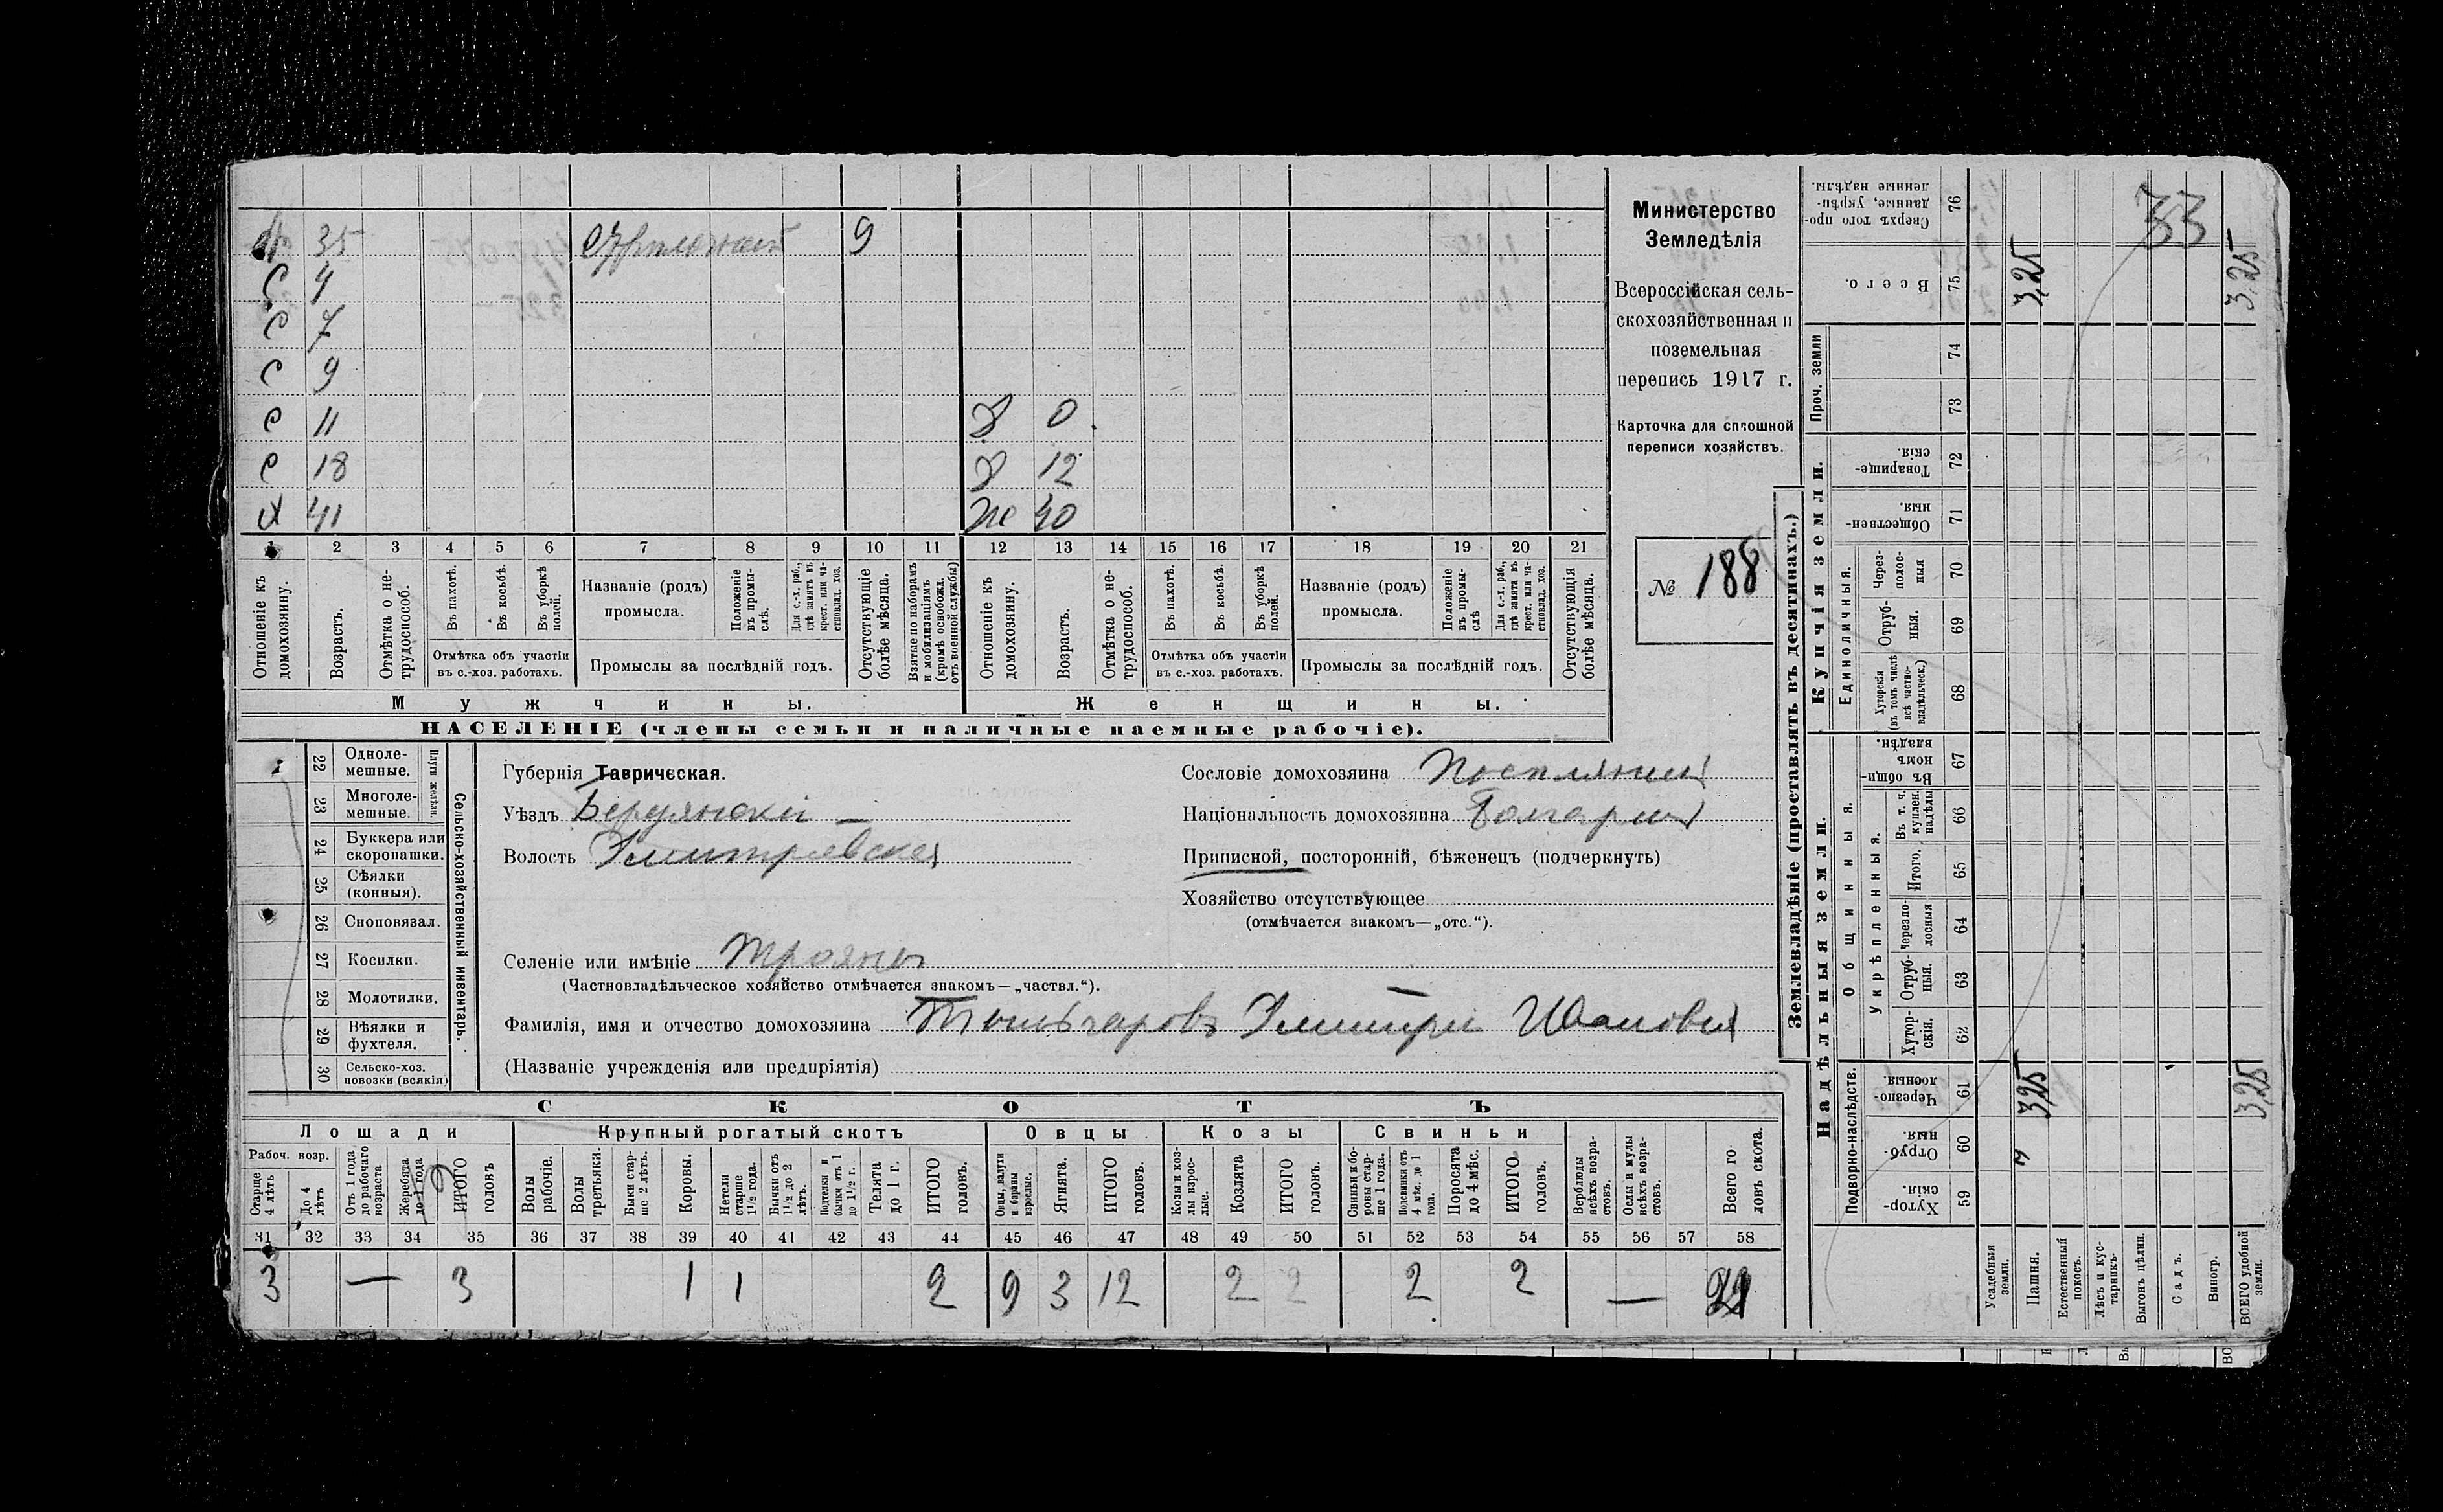 33
35
9
С 4
С 7
С 9
С 11
С 18
Х 41
Д 0
Д 12
Же 40
1 2 3 4 5 6 7 8 9 10 11 12 13 14 15 16 17 18 19 20 21
Отношеніе къ домохозяину.
Возрастъ.
Отмѣтка о не-
трудоспособ.
Въ пахотѣ.
Въ косьбѣ.
Въ уборкѣ
полей.
Отмѣтка объ участіи
въ с.-хоз. работахъ.
Названіе (родъ)
промысла.
Положеніе
въ промы-
слѣ.
Для с.-х. раб.,
гдѣ занятъ въ
крест. или ча-
стновлад. хоз.
Промыслы за послѣдній годъ.
Отсутствующіе
болѣе мѣсяца.
Взятые по наборамъ
и мобилизаціямъ
(кромѣ освобожд.
отъ военной службы)
Отношеніе къ
домохозяину.
Возрастъ.
Отмѣтка о не-
трудоспособ.
Въ пахотѣ.
Въ косьбѣ.
Въ уборкѣ
полей.
Отмѣтка объ участіи
въ с.-хоз. работахъ.
Названіе (родъ)
промысла.
Положеніе
въ промы-
слѣ
Для с.-х. раб.,
гдѣ занята въ
крест. или ча-
стновлад. хоз.
Промыслы за послѣдній годъ.
Отсутствующія
болѣе мѣсяца.
Мужчины.
Женщины.
НАСЕЛЕНІЕ (члены семьи и наличные наемные рабочіе).
Министерство
Земледѣлія
Всероссійская сель-
скохозяйственная и
поземельная
перепись 1917 г.
Карточка для сплошной
переписи хозяйствъ.
№ 188
22 Одноле-
мешные.
23 Многоле-
мешные.
Плуги желѣзн.
24 Буккера или
скоропашки.
25 Сѣялки
(конныя).
26 Сноповязал.
27 Косилки.
28 Молотилки.
29 Вѣялки и
фухтеля.
30 Сельско-хоз.
повозки (всякія)
Сельско-хозяйственный инвентарь.
Губернія Таврическая.
Уѣздъ Бердянскій
Волость Дмитровская
Селеніе или имѣніе Трояны
(Частновладѣльческое хозяйство отмѣчается знакомъ—„частвл.“).
Фамилія, имя и отчество домохозяина Дмитрій Ивановъ
(Названіе учрежденія или предпріятія)
Сословіе домохозяина Поселянинъ
Національность домохозяина Болгаринъ
Приписной, посторонній, бѣженецъ (подчеркнуть)
Хозяйство отсутствующее
(отмѣчается знакомъ—„отс.“).
СКОТЪ
Лошади
Рабоч. возр.
Старше
4 лѣтъ
До 4
лѣтъ
Отъ 1 года
до рабочаго
возраста
Жеребята
до 1 года
ИТОГО
головъ
Крупный рогатый скотъ
Волы
рабочіе.
Волы
третьяки.
Быки стар-
ше 2 лѣтъ.
Коровы.
Нетели
старше
1½ года.
Бычки отъ
1½ до 2
лѣтъ.
Подтелки и
бычки отъ 1
до 1½ г.
Телята
до 1 г.
ИТОГО
головъ.
Овцы
Овцы, валухи
и бараны
взрослые.
Ягнята.
ИТОГО
головъ.
Козы
Козы и коз-
лы взрос-
лые.
Козлята
ИТОГО
головъ.
Свиньи
Свиньи и бо-
ровы стар-
ше 1 года.
Подсвинки отъ
4 мѣс. до 1
года.
Поросята
до 4 мѣс.
ИТОГО
головъ.
Верблюды
всѣхъ возра-
стовъ.
Ослы и мулы
всѣхъ возра-
стовъ.
Всего го-
ловъ скота.
31 32 33 34 35 36 37 38 39 40 41 42 43 44 45 46 47 48 49 50 51 52 53 54 55 56 57 58
3 — 3 1 1 2 9 3 12 2 2 2 2 —
Землевладѣніе (проставлять въ десятинахъ.)
Надѣльныя земли.
Подворно-наслѣдств.
Хутор-
скія.
59
Отруб-
ныя.
60
Черезпо-
лосныя.
61
Общинныя.
Укрѣпленныя.
Хутор-
скія.
62
Отруб-
ныя.
63
Черезпо-
лосныя
64
Итого.
65
Въ т. ч.
куплен.
надѣлы
66
Въ общин-
номъ
владѣн.
67
Купчія земли.
Единоличныя.
Хуторскія
(въ томъ числѣ
всѣ частно-
владѣльческ.)
68
Отруб-
ныя.
69
Через-
полос-
ныя
70
Обществен-
ныя.
71
Товарище-
скія.
72
Проч. земли
73
74
Всего.
75
Сверхъ того про-
данные, укрѣп-
ленные надѣлы.
76
Усадебныя
земли.
Пашня.
3,25
3,25
Естественный
покосъ.
Лѣсъ и кус-
тарникъ.
Выгонъ цѣлин.
Садъ.
Виногр.
ВСЕГО удобной
земли.
3,25
3,25